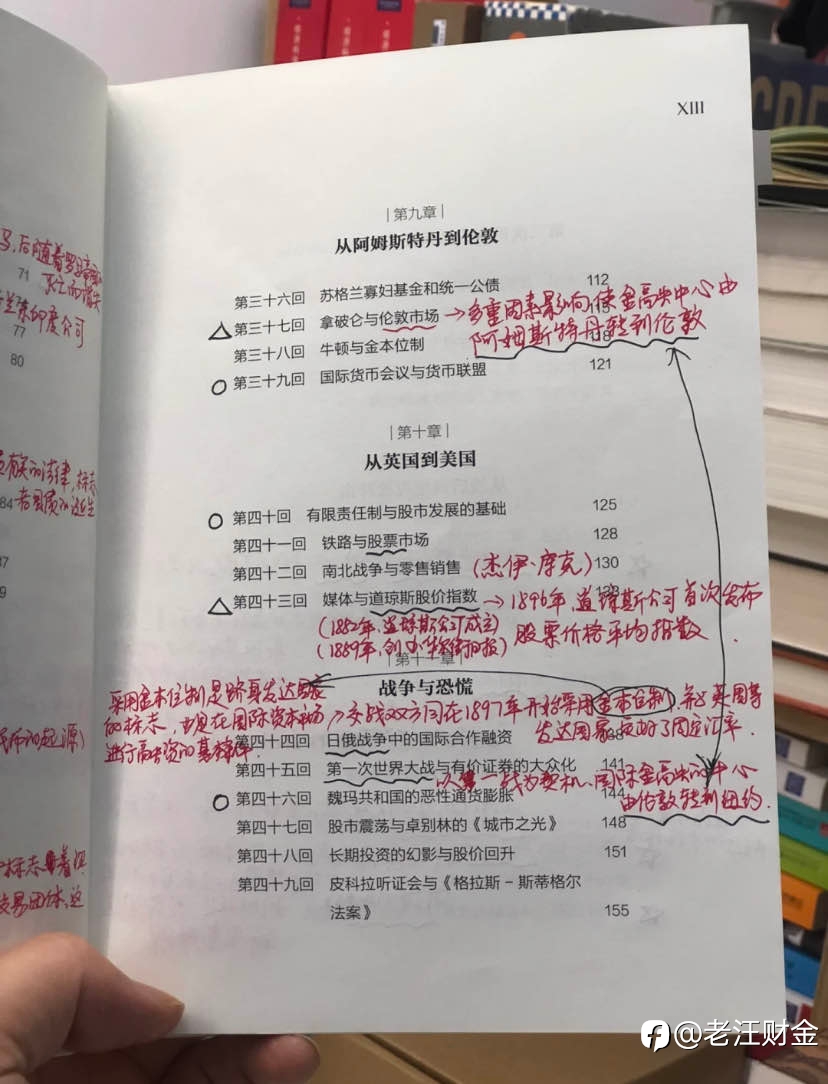 XIII
|第九章|
从阿姆斯特丹到伦敦
第三十六回 苏格兰寡妇基金和统一公债 112
△第三十七回 拿破仑与伦敦市场 →多重因素影响,使金融中心由
阿姆斯特丹转到伦敦
第三十八回 牛顿与金本位制 118
○第三十九回 国际货币会议与货币联盟 121
|第十章|
从英国到美国
○第四十回 有限责任制与股市发展的基础 125
第四十一回 铁路与股票市场 128
第四十二回 南北战争与零售销售 (杰伊·库克) 130
△第四十三回 媒体与道琼斯股价指数 →1896年,道琼斯公司首次发布
股票价格平均指数.
(1882年,道琼斯公司成立)
(1889年,创办华尔街日报)
|第十一章|
战争与恐慌
采用金本位制是跻身发达国家
的标志,也是在国际资本市场
进行融资的基础
交战双方同在1897年开始采用金本位制,和英国等
发达国家 了固定汇率.
第四十四回 日俄战争中的国际合作融资 138
第四十五回 第一次世界大战与有价证券的大众化 141
以第一战为契机,国际金融的中心
由伦敦转到纽约.
○第四十六回 魏玛共和国的恶性通货膨胀 144
第四十七回 股市震荡与卓别林的《城市之光》 148
第四十八回 长期投资的幻影与股价回升 151
第四十九回 皮科拉听证会与《格拉斯－斯蒂格尔
法案》 155
后随着罗马帝国
71
77
80
84
@老汪财金